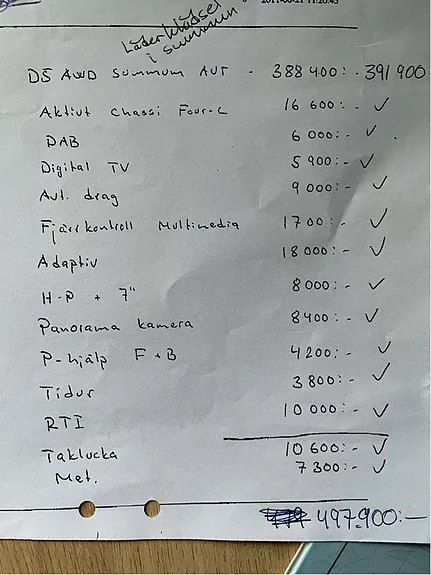 Läderklädsel
i summum
D5 AWD Summum AUT - 388 400:- 391 900
Aktivt Chassi Four-C 16 600:- ✓
DAB 6 000:- ✓
Digital TV 5 900:- ✓
Avt. drag 9 000:- ✓
Fjärrkontroll Multimedia 1700:- ✓
Adaptiv 18 000:- ✓
H-P + 7" 8000:- ✓
Panorama kamera 8400:- ✓
P-hjälp F+B 4200:- ✓
Tidur 3800:- ✓
RTI 10 000:- ✓
Taklucka 10 600:- ✓
Met. 7 300:- ✓
497.900:-